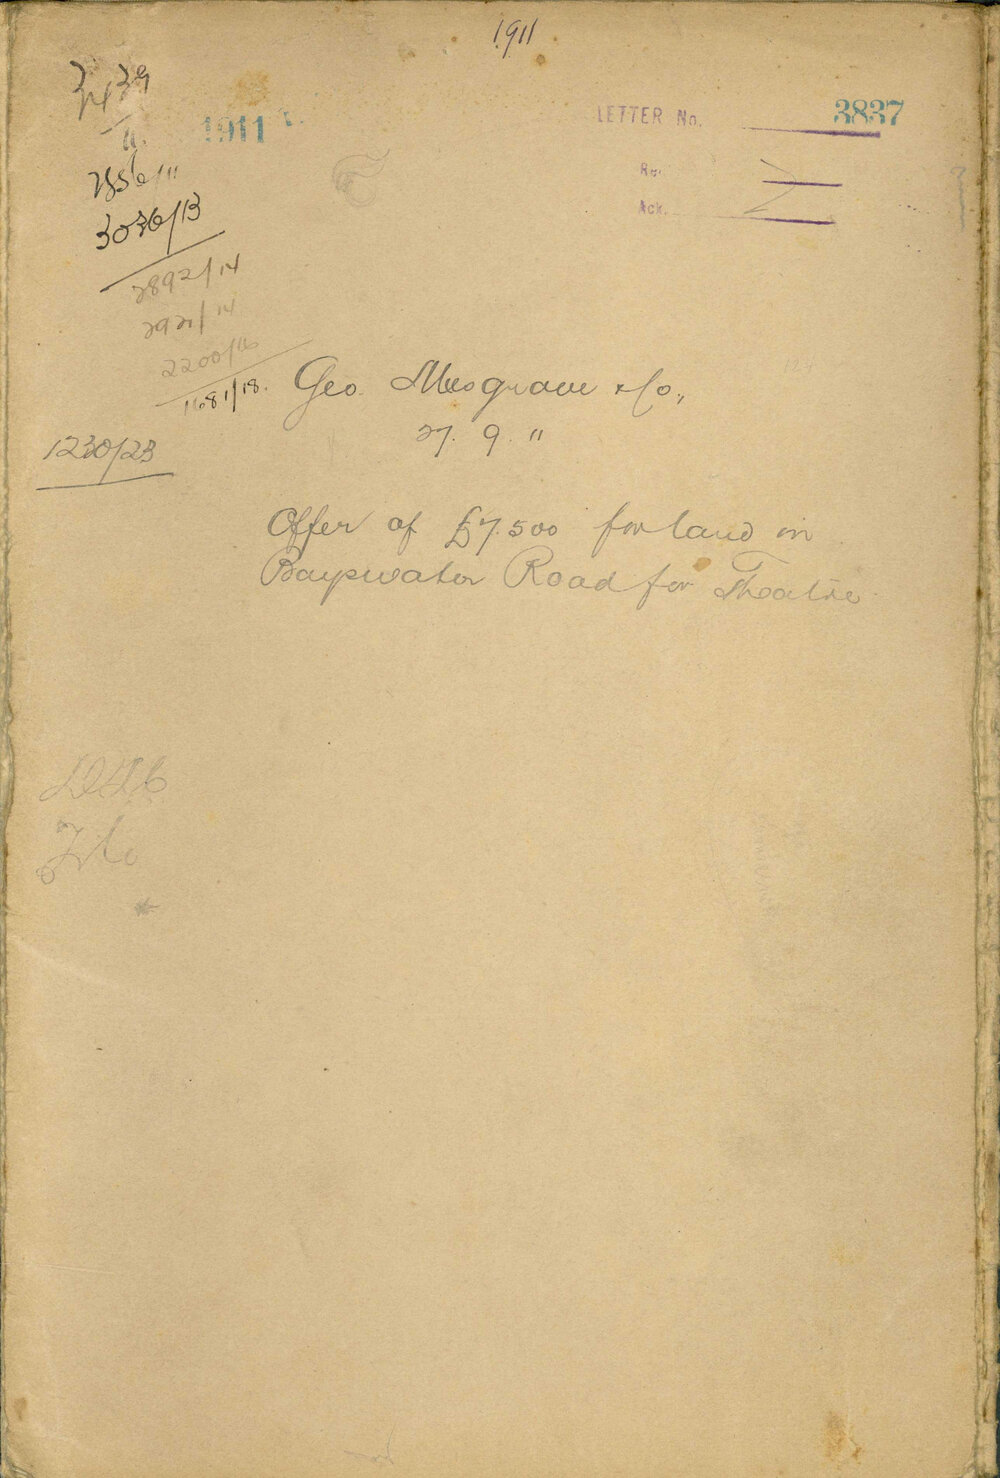 1911
3439
11.
2856/11
3036/13
2892/14
2921/14
2200/16
1681/18.
1230/23
1911
LETTER No. 3837
Re
Ack.
Geo Musgrave & Co.,
27. 9. 11
Offer of £7.500 for land in
Bayswater Road for Theatre